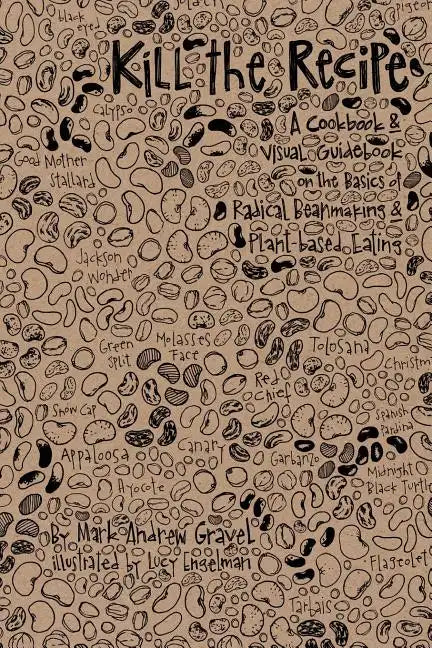 Black
eye
Pigeon
Kill the Recipe
Calypso
A Cookbook &
Visual Guidebook
on the Basics of
Radical Beanmaking &
Plant-based Eating
Good Mother
Stallard
Jackson
Wonder
Green
Split
Molasses
Face
Tolosana
Christm
Red
Chief
Snow Cap
Spanish
Pardina
Canary
Garbanzo
Appaloosa
Midnight
Black Turtle
Ayocote
by Mark Andrew Gravel
illustrated by Lucy Engelman
Flageolet
Tarbais